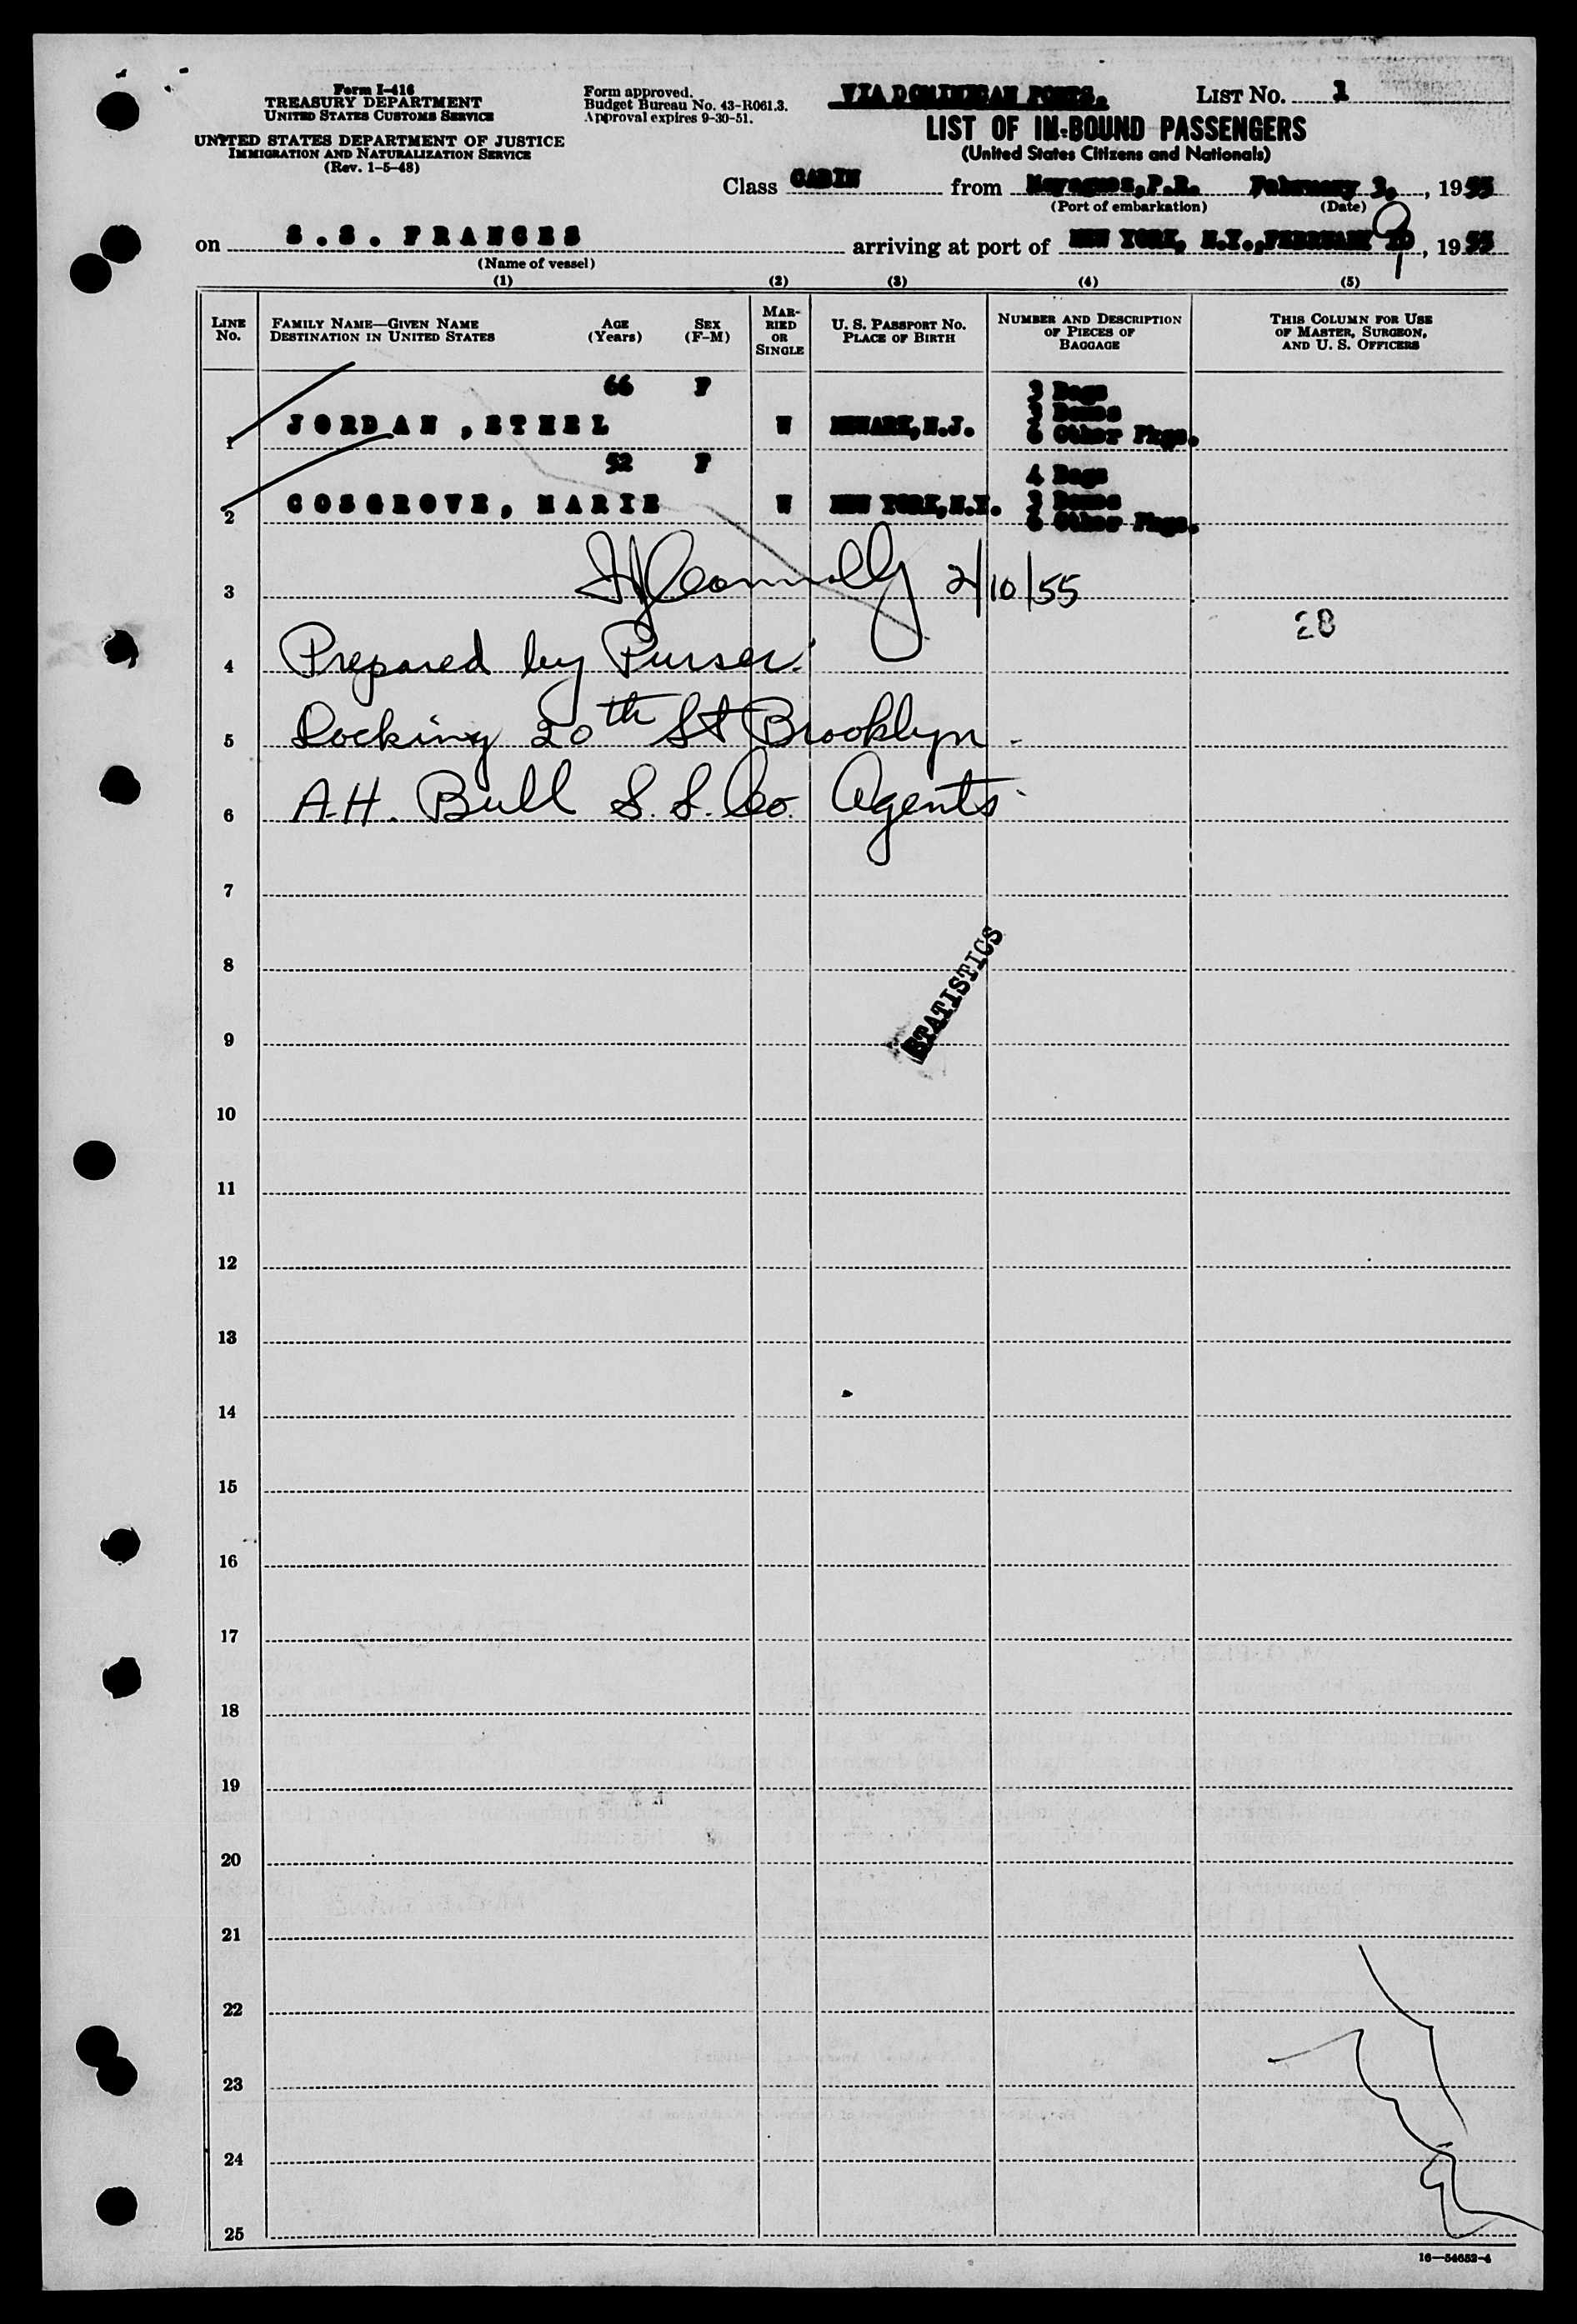 Form I-416
TREASURY DEPARTMENT
UNITED STATES CUSTOMS SERVICE
UNITED STATES DEPARTMENT OF JUSTICE
IMMIGRATION AND NATURALIZATION SERVICE
(Rev. 1-5-48)
Form approved.
Budget Bureau No. 43-R061.3.
Approval expires 9-30-51.
VIA DOMINICAN PORTS.
LIST No. 1
LIST OF IN-BOUND PASSENGERS
(United States Citizens and Nationals)
Class CABIN from Mayaguez, P.R. February 3, 1955
(Port of embarkation) (Date)
on S.S. FRANCES arriving at port of NEW YORK, N.Y., FEBRUARY 9, 1955
(Name of vessel)
(1) (2) (3) (4) (5)
LINE No. FAMILY NAME—GIVEN NAME DESTINATION IN UNITED STATES AGE (Years) SEX (F-M) MARRIED OR SINGLE U. S. PASSPORT No. PLACE OF BIRTH NUMBER AND DESCRIPTION OF PIECES OF BAGGAGE THIS COLUMN FOR USE OF MASTER, SURGEON, AND U. S. OFFICERS
66 F 3 Bags
3 Boxes
1 JORDAN, ETHEL W NEWARK, N.J. 6 Other Pkgs.
52 F 4 Bags
2 COSGROVE, MARIE W NEW YORK, N.Y. 3 Boxes
6 Other Pkgs.
3 Connolly 2/10/55
28
4 Prepared by Purser
5 Docking 20th St Brooklyn
6 A.H. Bull S.S. Co. Agents
7
8
STATISTICS
9
10
11
12
13
14
15
16
17
18
19
20
21
22
23
24
25
16—54652-4